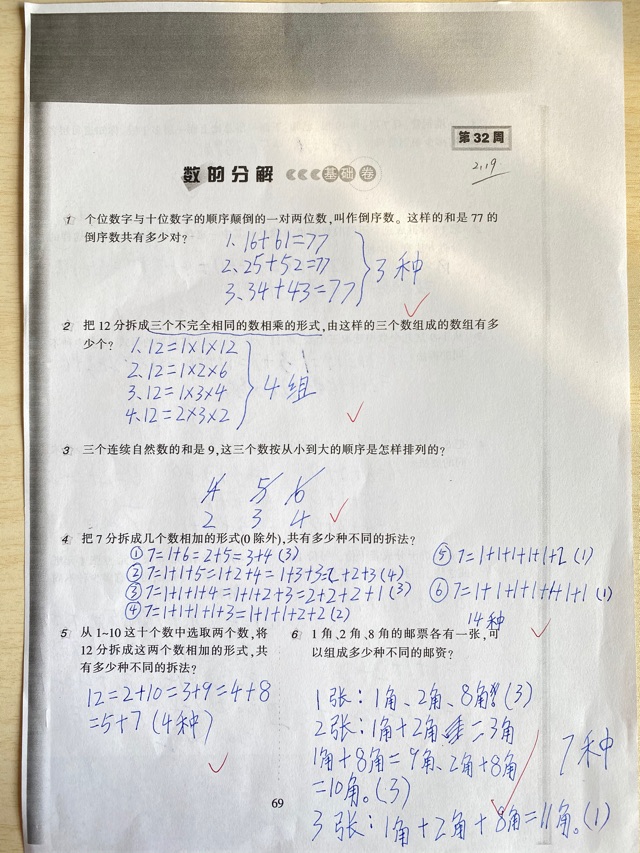 第32周
2,19
数的分解 基础卷
1 个位数字与十位数字的顺序颠倒的一对两位数,叫作倒序数。这样的和是77的
倒序数共有多少对?
1、16+61=77
2、25+52=77
3、34+43=77
3种
2 把12分拆成三个不完全相同的数相乘的形式,由这样的三个数组成的数组有多
少个?
1、12=1×1×12
2、12=1×2×6
3、12=1×3×4
4、12=2×3×2
4组
3 三个连续自然数的和是9,这三个数按从小到大的顺序是怎样排列的?
4 5 6
2 3 4
4 把7分拆成几个数相加的形式(0除外),共有多少种不同的拆法?
①7=1+6=2+5=3+4(3)
②7=1+1+5=1+2+4=1+3+3=2+2+3(4)
③7=1+1+1+4=1+1+2+3=2+2+2+1(3)
④7=1+1+1+1+3=1+1+1+2+2(2)
⑤7=1+1+1+1+1+2(1)
⑥7=1+1+1+1+1+1+1(1)
14种
5 从1~10这十个数中选取两个数,将
12分拆成这两个数相加的形式,共
有多少种不同的拆法?
12=2+10=3+9=4+8
=5+7(4种)
6 1角、2角、8角的邮票各有一张,可
以组成多少种不同的邮资?
1张:1角、2角、8角(3)
2张:1角+2角=3角
1角+8角=9角、2角+8角
=10角。(3)
3张:1角+2角+8角=11角。(1)
7种
69